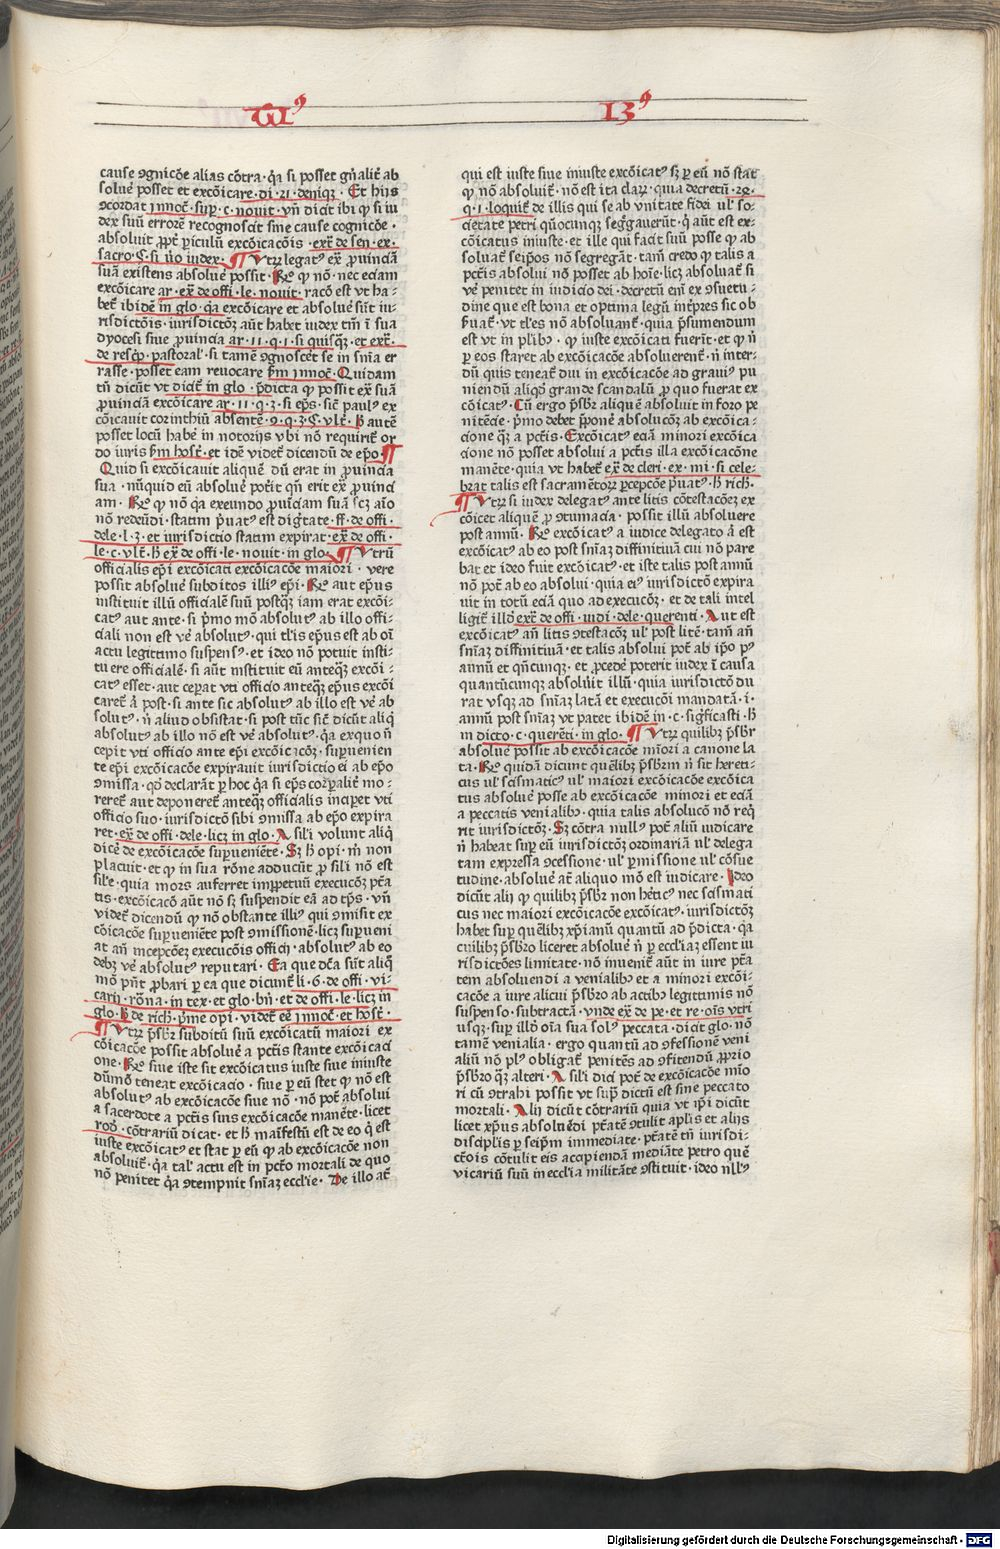 VIꝰ 13ꝰ
cause ꝯgnicōe alias cōtra · qꝛ si posset gn̄alit̄ ab
soluē posset et excōicare · di · 21 · deniqꝫ · Et hijs
ꝯcordat jnnoc̄ · sup̄ · c · nouit · vn̄ dicit ibi ꝙ si iu
dex suū errorē recognoscit sine cause cognicōe ·
absoluit ꝓpt̄ periculū excōicacōis · ext̄ de sen · ex ·
sacro · C · si v̄o iudex · ¶ Vtrꝫ legatꝰ ex̄ ꝓuinciā
suā existens absoluē possit · Rō ꝙ nō · nec eciam
excōicare ar · ex̄ de offi · le · nouit · racō est vt ha-
bet̄ ibidē in glo · qꝛ excōicare et absoluē sūt iu-
risdictōis · iurisdictōꝫ aūt habet iudex tm̄ ī sua
dyocesi siue ꝓuincia ar · 11 · q · 1 · si quisqꝫ · et ext̄ ·
de rescp̄ · pastoral̓ · si tamē ꝯgnoscēt se in sn̄ia er
rasse · posset eam reuocare ẜm jnnoc̄ · Quidam
tn̄ dicūt vt dicit̄ in glo · p̄dicta ꝙ possit ex̄ suā
ꝓuinciā excōicare ar · 11 · q · 3 · si ep̄s · sic̄ paulꝰ ex
cōicauit corinthiū absentē · 9 · q · 3 · C · vlt̄ · ẜ autē
posset locū habē in notorijs vbi nō requirit̄ or
do iuris ẜm host̄ · et idē videt̄ dicendū de ep̄o · ¶
Quid si excōicauit aliquē dū erat in ꝓuincia
sua · nūquid eū absoluē pot̄it qn̄ erit ex̄ ꝓuinci
am · Rō ꝙ nō qꝛ exeundo ꝓuīciam suā scꝫ aīo
nō redeūdi · statim p̄uatꝰ est dig̓tate · ff · de offi ·
dele · l · 3 · et iurisdictio statim expirat · ex̄ de offi ·
le · c · vlt̄ · ẜ ex̄ de offi · le · nouit · in glo · ¶ Vtrū
officialis ep̄i excōicati excōicacōe maiori · vere
possit absoluē subditos illiꝰ ep̄i · Rō aut ep̄us
instituit illū officialē suū postqꝫ iam erat excōi-
catꝰ aut ante · si p̄mo mō absolutꝰ ab illo offi-
ciali non est vē absolutꝰ · qui tl̓is ep̄us est ab oī
actu legittimo suspensꝰ · et ideo nō potuit insti-
tuere officialē · si aūt instituit eū anteqꝫ excōi-
catꝰ esset · aut cep̄at vti officio anteqꝫ ep̄us excōi
caret̄ ā post · si ante sic absolutꝰ ab illo est vē ab
solutꝰ · n̄ aliud obsistat · si post tūc sic̄ dicūt aliq̄
absolutꝰ ab illo nō est vē absolutꝰ · qꝛ exquo n̄
cepit vti officio ante ep̄i excōicacōꝫ · supuenien
te ep̄i excōicacōe expirauit iurisdictio ei ab ep̄o
ꝯmissa · qd̓ declarāt per hoc qꝛ si ep̄s corꝑalit̄ mo-
reret̄ aut deponeret̄ anteqꝫ officialis incip̄et vti
officio suo · iurisdictō sibi ꝯmissa ab ep̄o expira
ret · ex̄ de offi · dele · licꝫ in glo · A sil̓i volunt aliq̄
dicē de excōicacōe supueniēte · Sꝫ ẜ opi · m̄ non
placuit · et ꝙ in sua rōne adducūt ꝓ sil̓i nō est
sil̓e · quia mors auferret imppetuū execucōꝫ ptā
tis · excōicacō aūt nō sꝫ suspendit eā ad tp̄s · vn̄
videt̄ dicendū ꝙ nō obstante illiꝰ qui ꝯmisit ex
cōicacōe supueniēte post ꝯmissionē · licꝫ supueni
at an̄ incepcōeꝫ execucōis officij · absolutꝰ ab eo
debꝫ vē absolutꝰ reputari · Ea que dc̄a sūt aliq̄
mō pn̄t ꝓbari per ea que dicunt̄ li · 6 · de offi · vi-
carij · rōna · in tex · et glo · bn̄ · et de offi · le · licꝫ in
glo · ẜ de rich · p̄me opi · videt̄ eē jnnoc̄ · et host̄ ·
¶ Vtrꝫ p̄sbr̄ subditū suū excōicatū maiori ex
cōicacōe possit absoluē a pctīs stante excōicaci
one · Rō siue iste sit excōicatus iuste siue iniuste
dūmō teneat excōicacio · siue per eū stet ꝙ nō est
absolutꝰ ab excōicacōe siue nō · nō pot̄ absolui
a sacerdote a pctīs suis excōicacōe manēte · licet
rod̓ · cōtrariū dicat · et ẜ maīfestū est de eo q̄ est
iuste excōicatꝰ et stat per eū ꝙ ab excōicacōe non
absoluit̄ · qꝛ tal̓ actu est in pctō mortali de quo
nō penitet qꝛ ꝯtempnit sn̄iaꝫ eccl̓ie · De illo at̄
qui est iuste siue iniuste excōicatꝰ sꝫ per eū nō stat
ꝙ nō absoluit̄ · nō est ita clarꝫ · quia decretū · 24 ·
q · 1 · loquit̄ de illis qui se ab vnitate fidei ul̓ so-
cietate petri quocunqꝫ seg̓gauerūt · q̄ aūt est ex-
cōicatus iniuste · et ille qui facit suū posse ꝙ ab
soluat̄ seip̄os nō segregāt · tam̄ credo ꝙ talis a
pctīs absolui nō posset ab hoīe · licꝫ absoluat̄ si
vē penitet in iudicio dei · decretū em̄ ex ꝯsuetu-
dine que est bona et optima legū int̄pres sic ob
ẜuat̄ · vt tl̓es nō absoluant̄ · quia p̄sumendum
est vt in plibꝫ · ꝙ iuste excōicati fuerīt · et ꝙ n̄
per eos staret ab excōicacōe absoluerent̄ · n̄ inter-
dū quis teneat̄ diu in excōicacōe ad grauiꝰ pu
niendū aliqd̓ grande scandalū ꝓ quo fuerat ex
cōicatꝰ · Cū ergo p̄sbr̄ aliquē absoluit in foro pe
nitēcie · p̄mo debet p̄ponē absolucōꝫ ab excōica-
cione qꝫ a pctīs · Excōicatꝰ eciā minori excōica
cione nō posset absolui a pctīs illa excōicacōne
manēte · quia vt habet̄ ex̄ de cleri · ex · mi · si cele-
brat talis est sacramētorꝫ perceꝑcōe p̄uatꝰ · ẜ rich̄ ·
¶ Vtrꝫ si iudex delegatꝰ ante litis cōtestacōeꝫ ex
cōicet aliquē ꝓ ꝯtumacia · possit illū absoluere
post annū · Rō excōicatꝰ a iudice delegato ā est
excōicatꝰ ab eo post sn̄iaꝫ diffinitiuā cui nō pare
bat et ideo fuit excōicatꝰ · et iste talis post annū
nō pot̄ ab eo absolui · quia eiꝰ iurisdictō expira
uit in totū eciā quo ad execucōꝫ · et de tali intel
ligit̄ illd̓ ex̄ de offi · iudi · dele · querenti · Aut est
excōicatꝰ an̄ litis ꝯtestacōꝫ ul̓ post litē · tam̄ an̄
sn̄iaꝫ diffinitiuā · et talis absolui pot̄ ab ip̄o pꝰ
annū et qn̄cunqꝫ · et ꝓcedē poterit iudex ī causa
quantūcunqꝫ absoluit illū · quia iurisdictō du
rat vsqꝫ ad sn̄iaꝫ latā et execucōi mandatā · i ·
annū post sn̄iaꝫ vt patet ibidē in · c · sig̓ficasti · ẜ
in dicto · c · querēti · in glo · ¶ Vtrꝫ quilibꝫ p̄sbr̄
absoluē possit ab excōicacōe mīori a canone la
ta · Rō quidā dicunt quēlibꝫ p̄sbr̄m n̄ sit hereti-
cus ul̓ scismaticꝰ ul̓ maiori excōicacōe excōica
tus absoluē posse ab excōicacōe minori et eciā
a peccatis venialibꝫ · quia talis absolucō nō req̄
rit iurisdictōꝫ · Sꝫ cōtra nullꝰ pot̄ aliū iudicare
n̄ habeat sup̄ eū iurisdictōꝫ ordinariā ul̓ delega
tam expressa ꝯcessione · ul̓ permissione ul̓ cōsue
tudine · absoluē at̄ aliquo mō est iudicare · Ideo
dicūt alij ꝙ quilibꝫ p̄sbr̄ non hēticꝰ nec scismati
cus nec maiori excōicacōe excōicatꝰ · iurisdictōꝫ
habet sup̄ quēlibꝫ xp̄ianū quantū ad p̄dicta · qꝛ
cuilibꝫ p̄sbr̄o liceret absoluē n̄ per eccl̓iaꝫ essent iu
risdictōes limitate · nō inuenit̄ aūt in iure ptā
tem absoluendi a venialibꝫ et a minori excōi-
cacōe a iure alicui p̄sbr̄o ab actibꝫ legittimis nō
suspenso · subtractā · vnde ex̄ de pe · et re · oīs vtri
usqꝫ · sup̄ illd̓ oīa sua solꝰ peccata · dicit glo · nō
tamē venialia · ergo quantū ad ꝯfessionē veni
aliū nō plꝰ obligat̄ penitēs ad ꝯfitendū ꝓprio
p̄sbr̄o qꝫ alteri · A sil̓i dici pot̄ de excōicacōe mīo
ri cū ꝯtrahi possit vt sup̄ dictū est sine peccato
mortali · Alij dicūt cōtrariū quia vt ip̄i dicūt
licet xp̄us absoluēdi ptātē ꝯtulit apl̓is et alijs
discipl̓is per seip̄m immediate · ptātē tn̄ iurisdi-
ctōis cōtulit eis accipiendā mediāte petro quē
vicariū suū in eccl̓ia militāte ꝯstituit · ideo null̓ꝰ
Digitalisierung gefördert durch die Deutsche Forschungsgemeinschaft - DFG